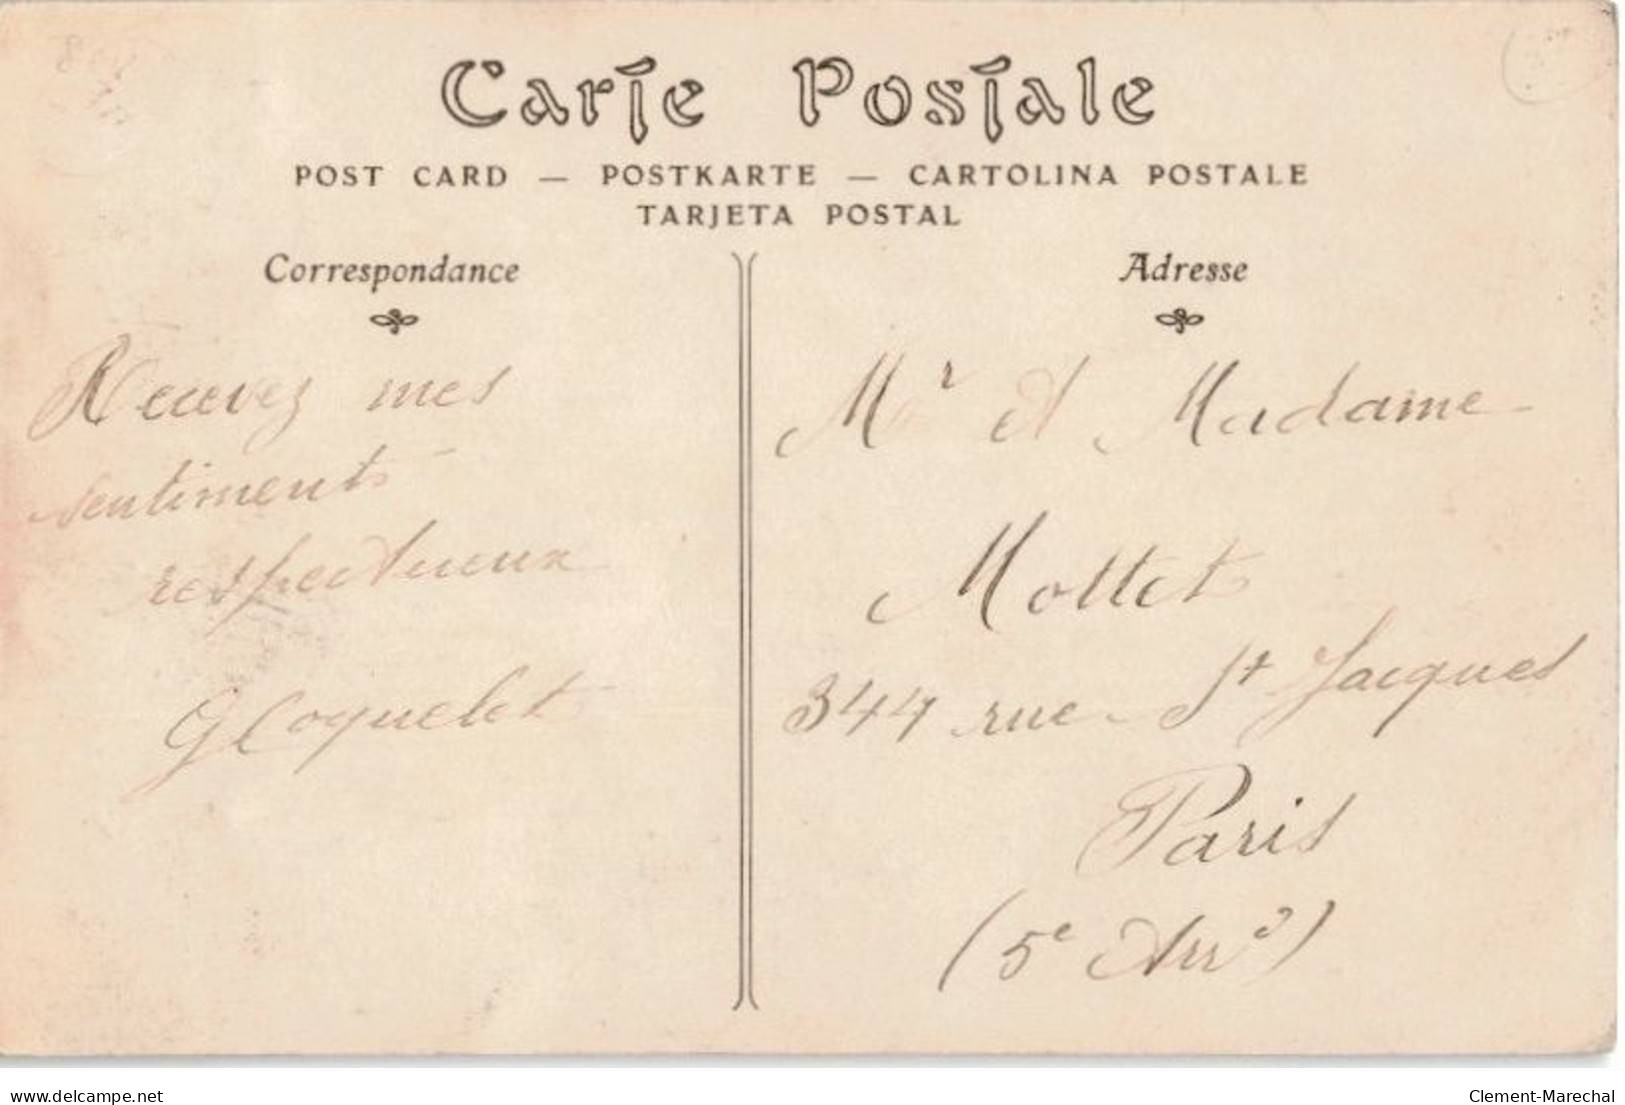 Carte Postale
POST CARD — POSTKARTE — CARTOLINA POSTALE
TARJETA POSTAL
Correspondance
Recevez mes
sentiments
respectueux
G Coquelet
Adresse
Mr et Madame
Mottet
344 rue St Jacques
Paris
(5e Arrt)
delcampe.net
Clement-Marechal